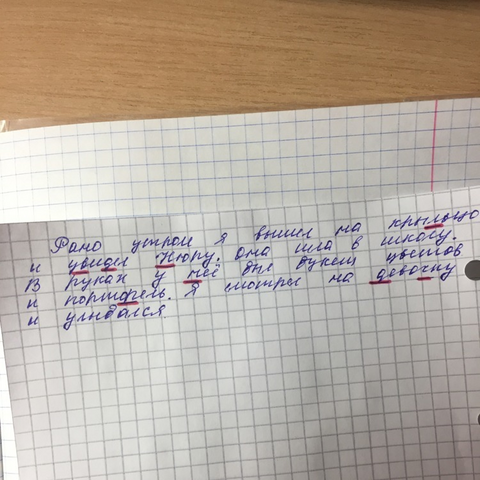 Рано утром я вышел на крыльцо
и увидел Нюру. Она шла в школу.
В руках у неё был букет цветов
и портфель. Я смотрел на девочку
и улыбался